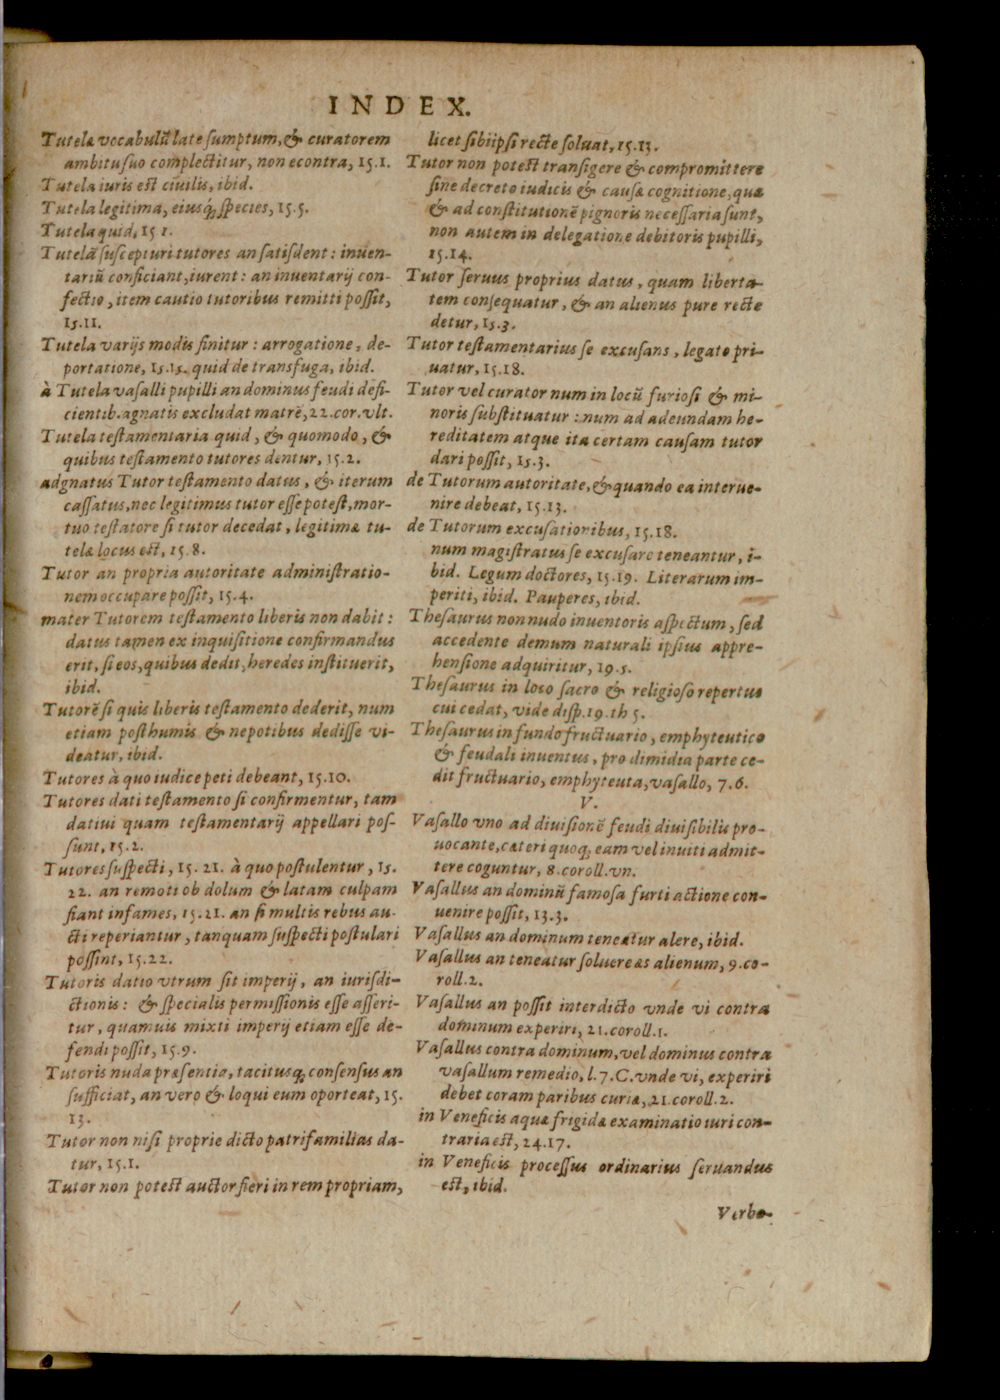 INDEX.
Tutelæ vocabulũ late sumptum, & curatorem
ambitu suo complectitur, non econtra, 15.1.
Tutela iuris est ciuilis, ibid.
Tutela legitima, eiusq́; species, 15.5.
Tutela quid, 15 1.
Tutelã suscepturi tutores an satisdent: inuen-
tariũ conficiant, iurent: an inuentarij con-
fectio, item cautio tutoribus remitti possit,
15.11.
Tutela varijs modis finitur: arrogatione, de-
portatione, 15.15. quid de transfuga, ibid.
à Tutela vasalli pupilli an dominus feudi defi-
cientib. agnatis excludat matrẽ, 22.cor.vlt.
Tutela testamentaria quid, & quomodo, &
quibus testamento tutores dentur, 15.2.
adgnatus Tutor testamento datus, & iterum
cassatus, nec legitimus tutor esse potest, mor-
tuo testatore si tutor decedat, legitimæ tu-
telæ locus est, 15.8.
Tutor an propria autoritate administratio-
nem occupare possit, 15.4.
mater Tutorem testamento liberis non dabit:
datus tamen ex inquisitione confirmandus
erit, si eos, quibus dedit, heredes instituerit,
ibid.
Tutorẽ si quis liberis testamento dederit, num
etiam posthumis & nepotibus dedisse vi-
deatur, ibid.
Tutores à quo iudice peti debeant, 15.10.
Tutores dati testamento si confirmentur, tam
datiui quam testamentarij appellari pos-
sunt, 15.2.
Tutores suspecti, 15. 21. à quo postulentur, 15.
22. an remoti ob dolum & latam culpam
fiant infames, 15.21. an si multis rebus au-
cti reperiantur, tanquam suspecti postulari
possint, 15.22.
Tutoris datio vtrum sit imperij, an iurisdi-
ctionis: & specialis permissionis esse asseri-
tur, quamuis mixti imperij etiam esse de-
fendi possit, 15.9.
Tutoris nuda præsentia, tacitusq; consensus an
sufficiat, an vero & loqui eum oporteat, 15.
13.
Tutor non nisi proprie dicto patrifamilias da-
tur, 15.1.
Tutor non potest auctor fieri in rem propriam,
licet sibiipsi recte soluat, 15.13.
Tutor non potest transigere & compromittere
sine decreto iudicis & causæ cognitione, quæ
& ad constitutionẽ pignoris necessaria sunt,
non autem in delegatione debitoris pupilli,
15.14.
Tutor seruus proprius datus, quam liberta-
tem consequatur, & an alienus pure recte
detur, 15.3.
Tutor testamentarius se excusans, legato pri-
uatur, 15.18.
Tutor vel curator num in locũ furiosi & mi-
noris substituatur: num ad adeundam he-
reditatem atque ita certam causam tutor
dari possit, 15.3.
de Tutorum autoritate, & quando ea interue-
nire debeat, 15.13.
de Tutorum excusationibus, 15.18.
num magistratus se excusare teneantur, i-
bid. Legum doctores, 15.19. Literarum im-
periti, ibid. Pauperes, ibid.
Thesaurus non nudo inuentoris aspectum, sed
accedente demum naturali ipsius appre-
hensione adquiritur, 19.5.
Thesaurus in loco sacro & religioso repertus
cui cedat, vide disp.19.th 5.
Thesaurus in fundo fructuario, emphyteutico
& feudali inuentus, pro dimidia parte ce-
dit fructuario, emphyteuta, vasallo, 7.6.
V.
Vasallo vno ad diuisionẽ feudi diuisibilis pro-
uocante, cæteri quoq; eam vel inuiti admit-
tere coguntur, 8.coroll.vn.
Vasallus an dominũ famosa furti actione con-
uenire possit, 13.3.
Vasallus an dominum teneatur alere, ibid.
Vasallus an teneatur soluere æs alienum, 9.co-
roll.2.
Vasallus an possit interdicto vnde vi contra
dominum experiri, 21.coroll.1.
Vasallus contra dominum, vel dominus contra
vasallum remedio, l.7.C.vnde vi, experiri
debet coram paribus curiæ, 21.coroll.2.
in Veneficis aquæ frigidæ examinatio iuri con-
traria est, 24.17.
in Veneficis processus ordinarius seruandus
est, ibid.
Verbo-